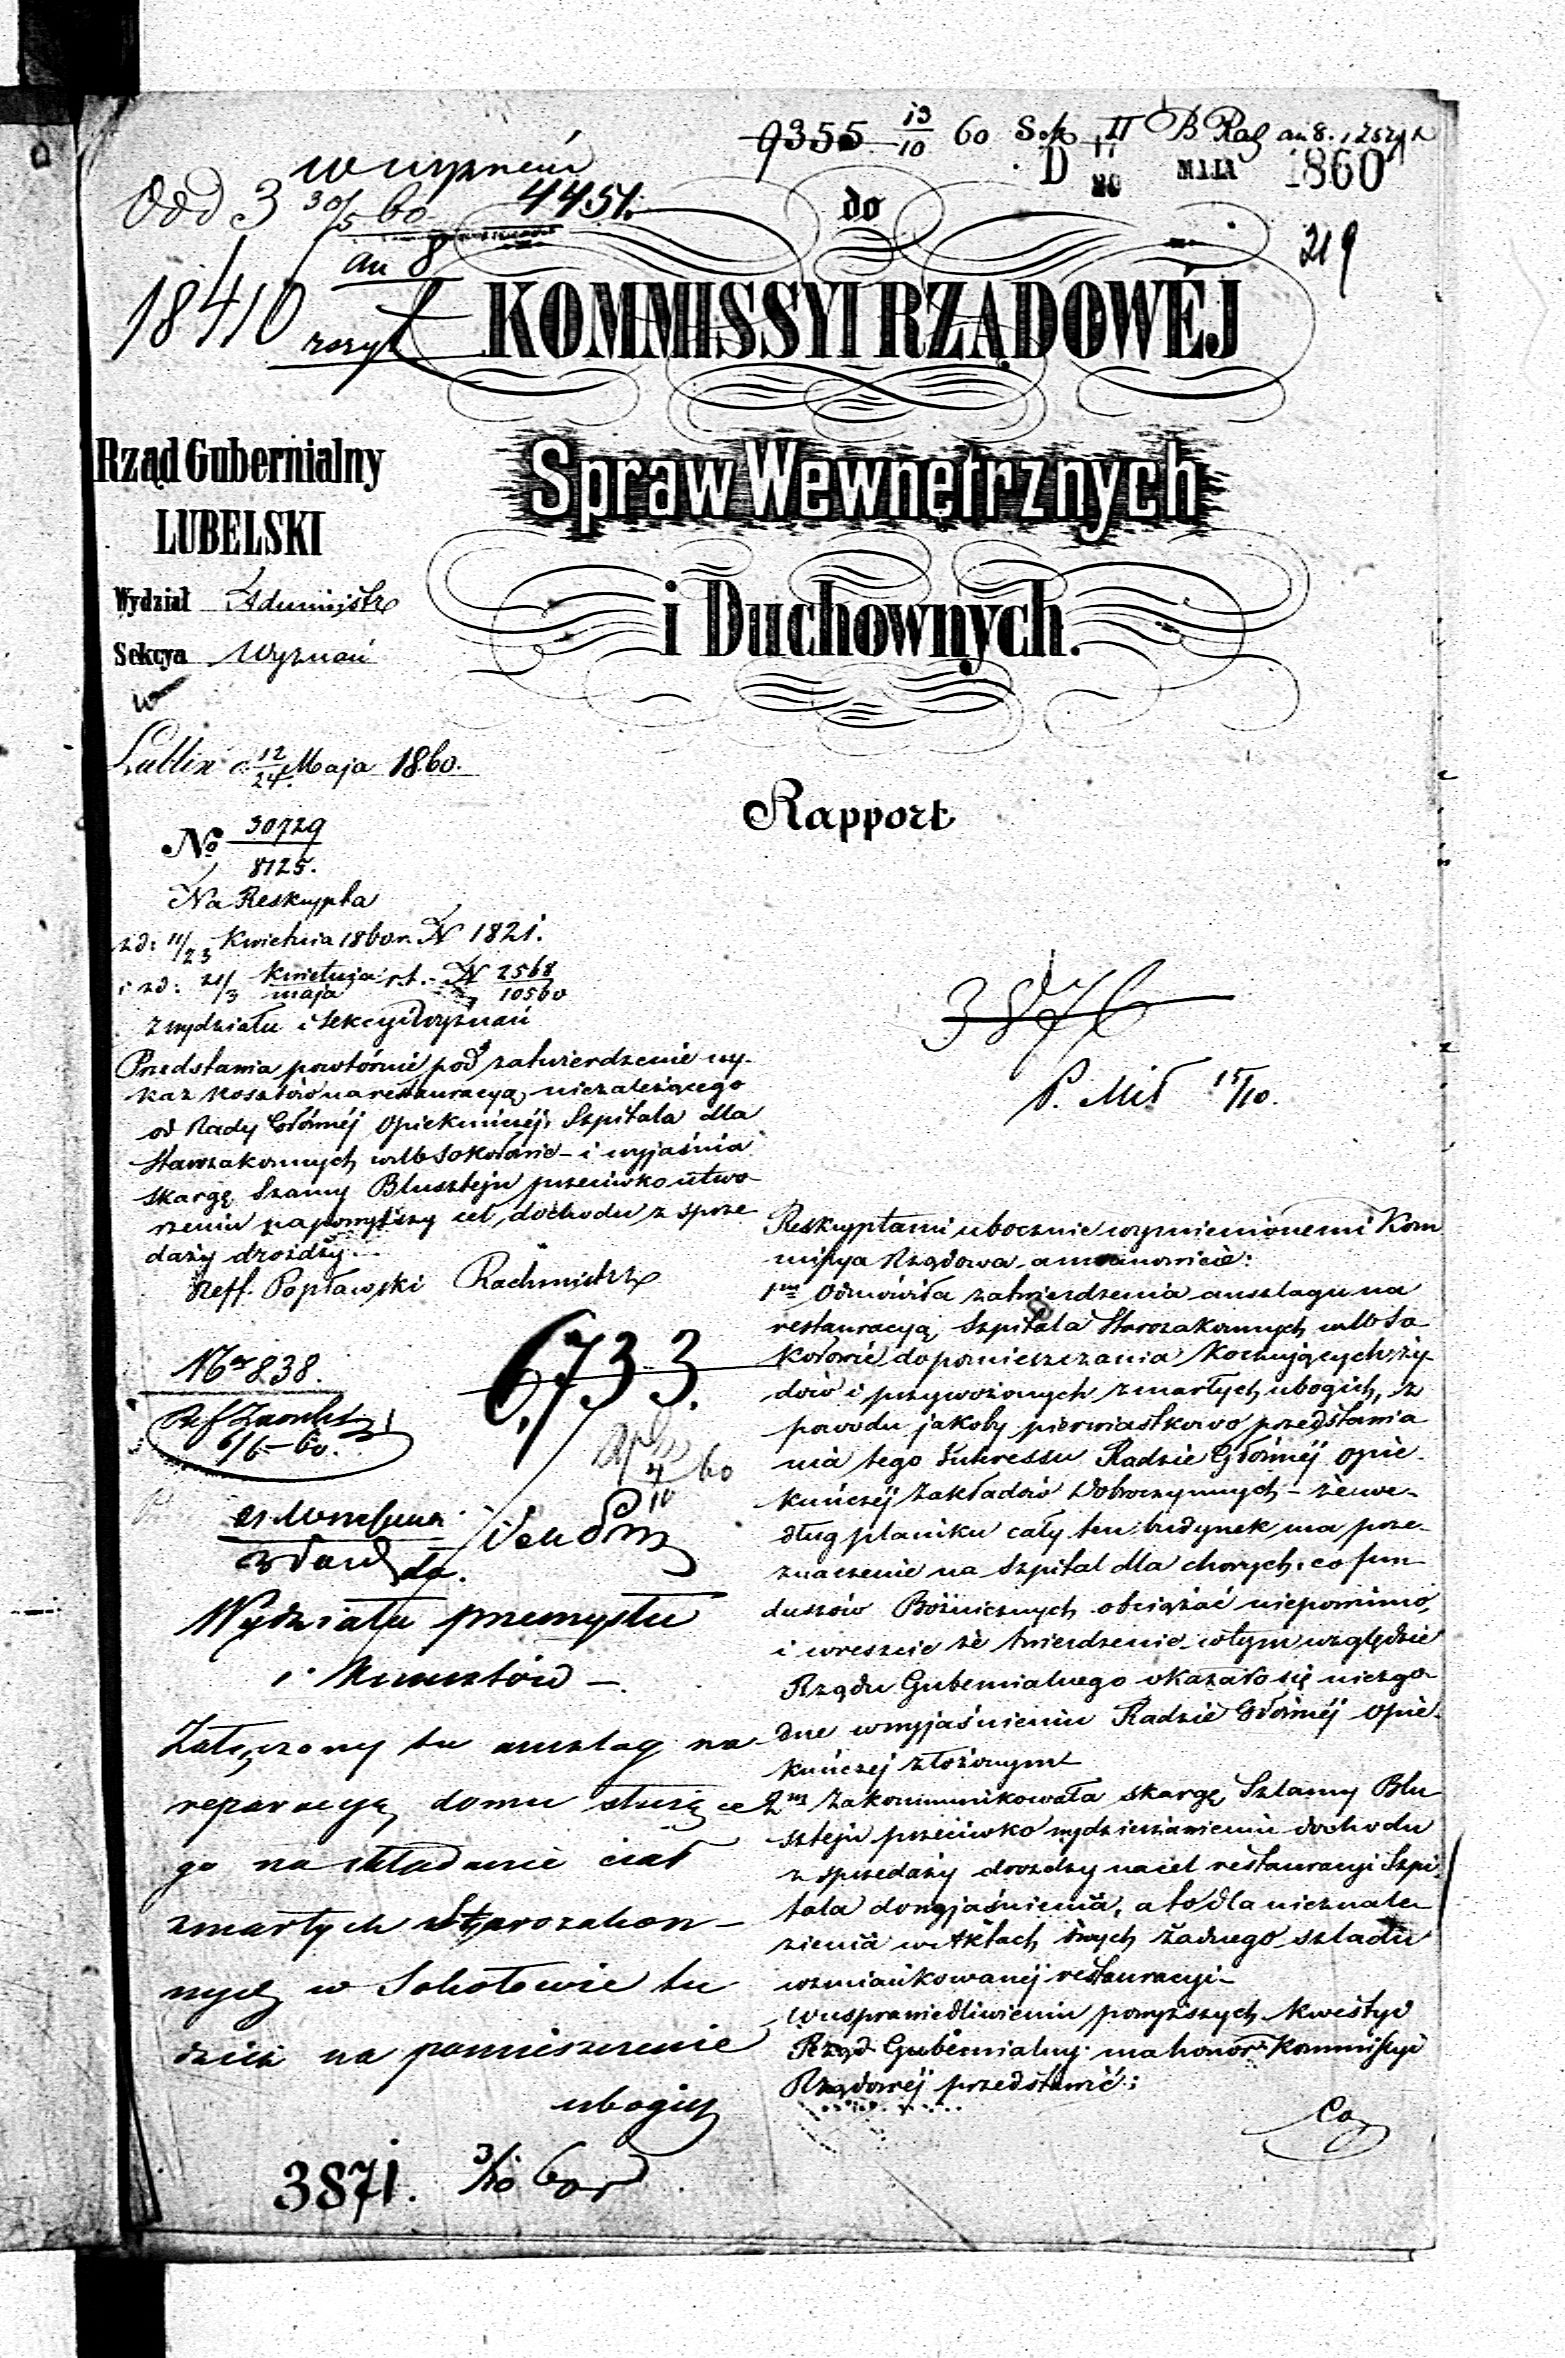 9355 13/10 60 Sek II
w wyznań
D 17 MAJA 1860
Odd 3 30/5 60 4451.
219
do
au 8
18410
KOMMISSYI RZĄDOWÉJ
Rząd Gubernialny
LUBELSKI
Spraw Wewnętrznych
i Duchownych.
Wydział Administr
Sekcya Wyznań
Lublin d. 12/24 Maja 1860.
Rapport
No 30729/8125.
Na Reskrypta
z d: 11/23 Kwietnia 1860 r. N 1821.
i zd: 21/3 Kwietnia/maja r.b. N 2568/10560
z wydziału i Sekcyi Wyznań
Przedstawia powtórnie pod zatwierdzenie wy-
kaz kosztów na restauracyą niezależącego
od Rady Głównéj Opiekuńczéj, Szpitala dla
Starozakonnych w Sokołowie - i wyjaśnia
skargę Szlamy Blusztejn przeciwko utwo-
rzeniu na powyższy cel, dochodu z sprze
daży drożdży.
Reff. Popławski Rachmistrz
3876
P. Mił 15/10.
No 838.
6733.
6/6 - 60.
4/10 60
Wydziału przemysłu
i Kunsztów -
Załączony tu anszlag na
reparacyę domu służące
go na składanie ciał
zmarłych Starozakon-
nych w Sokołowie tu
dzież na pomieszczenie
ubogich
3871. 3/10 60 r
Reskryptami ubocznie wymienionemi Kom
missya Rządowa a mianowicie:
1mo Odmówiła zatwierdzenia anszlagu na
restauracyą Szpitala Starozakonnych w So
kołowie do pomieszczania kochujących ży
dów i przywożonych zmarłych ubogich, z
powodu jakoby pierwiastkowo przedstawia
nia tego Interessu Radzie Głównéj Opie
kuńczéj Zakładów Dobroczynnych - że we-
dług planiku cały ten budynek ma prze-
znaczenie na szpital dla chorych, co fun
duszów Bóżnicznych obciążać niepowinno,
i wreszcie że twierdzenie w tym względzie
Rządu Gubernialnego okazało się niezgo-
dne w wyjaśnieniu Radzie Głównéj Opie-
kuńczej złożonym
2do Zakommunikowała skargę Szlamy Blu
sztejn przeciwko wydzierżawieniu dochodu
z sprzedaży drożdży na cel restauracyi Szpi
tala do wyjaśnienia, a to dla nieznale-
zienia w Aktach swych żadnego szladu
wzmiankowanéj restauracyi -
W usprawiedliwieniu powyższych kwestyi
Rząd Gubernialny ma honor Kommissyi
Rządowéj przedstawić:
Co